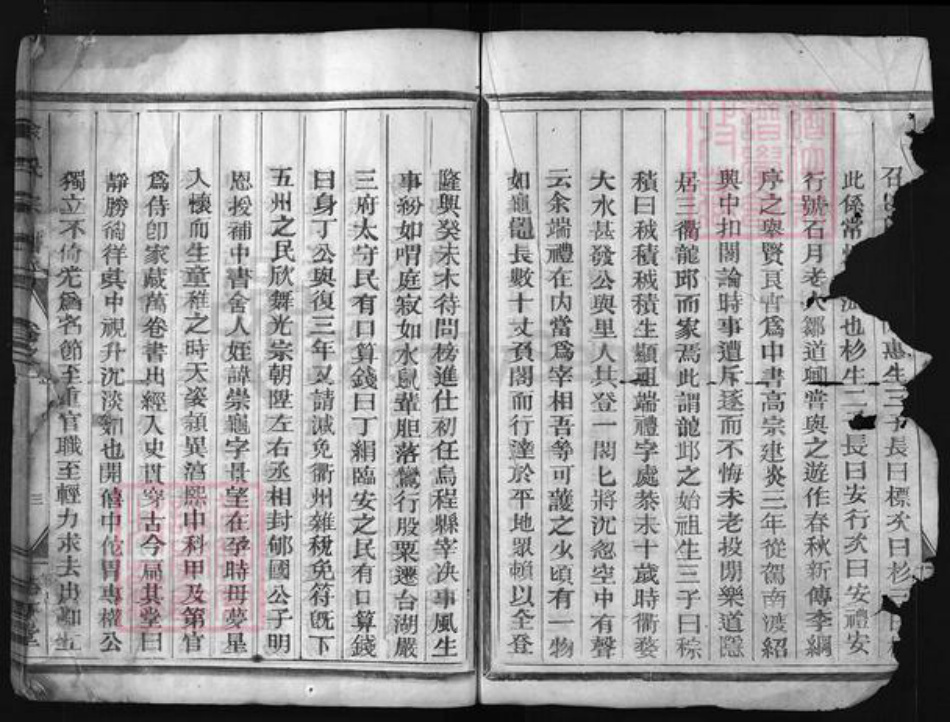 惠生三子長曰標次曰杉
此係常也杉生二長曰安行次曰安禮安
行號石月老人鄒道鄉嘗與之遊作春秋新傳李綱
序之舉賢良官為中書高宗建炎三年從駕南渡紹
興中扣閽論時事遭斥逐而不悔未老投閒樂道隱
居三衢龍邱而家焉此謂龍邱之始祖生三子曰秶
積曰秶積秶積生顯祖端禮字處恭未十歲時衢婺
大水甚發公與里人共登一閣匕將沉忽空中有聲
云余端禮在內當為宰相吾等可護之少頃有一物
如龜鼉長數十丈負閣而行達於平地眾賴以全登
隆興癸未木待問榜進仕初任烏程縣宰決事風生
事紛如喟庭寂如水鼠輩胆落鷺行股栗遷台湖嚴
三府太守民有口算錢曰丁絹臨安之民有口算錢
曰身丁公與復三年又請減免衢州雜稅免符既下
五州之民欣舞光宗朝陞左右丞相封郇國公子明
恩授補中書舍人姪諱崇龜字景望在孕時母夢星
入懷而生童稚之時天姿穎異淳熙中科甲及第官
為侍郎家藏萬卷書出經入史貫穿古今扁其堂曰
靜勝徜徉其中視升沉淡如也開僖中侂胄專權公
獨立不倚尤為名節至重官職至輕力求去出知江
余氏宗譜 卷之 三